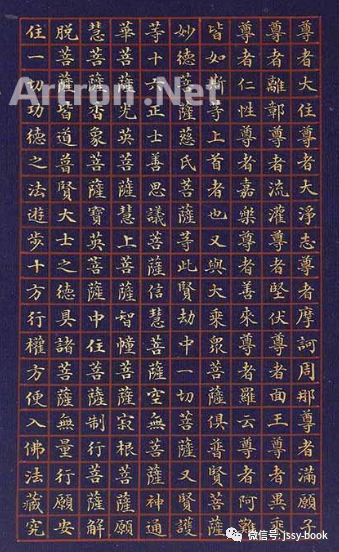 尊者大住尊者大淨志尊者摩訶周那尊者滿願子
尊者離鄣尊者流灌尊者堅伏尊者面王尊者異乘
尊者仁性尊者嘉樂尊者善來尊者羅云尊者阿難
皆如斯等上首者也又與大乘眾菩薩俱普賢菩薩
妙德菩薩慈氏菩薩等此賢劫中一切菩薩又賢護
等十六正士善思議菩薩信慧菩薩空無菩薩神通
華菩薩光英菩薩慧上菩薩智幢菩薩寂根菩薩願
慧菩薩香象菩薩寶英菩薩中住菩薩制行菩薩解
脫菩薩皆遵普賢大士之德具諸菩薩無量行願安
住一切功德之法遊步十方行權方便入佛法藏究
Artron.Net
微信号: jssy-book